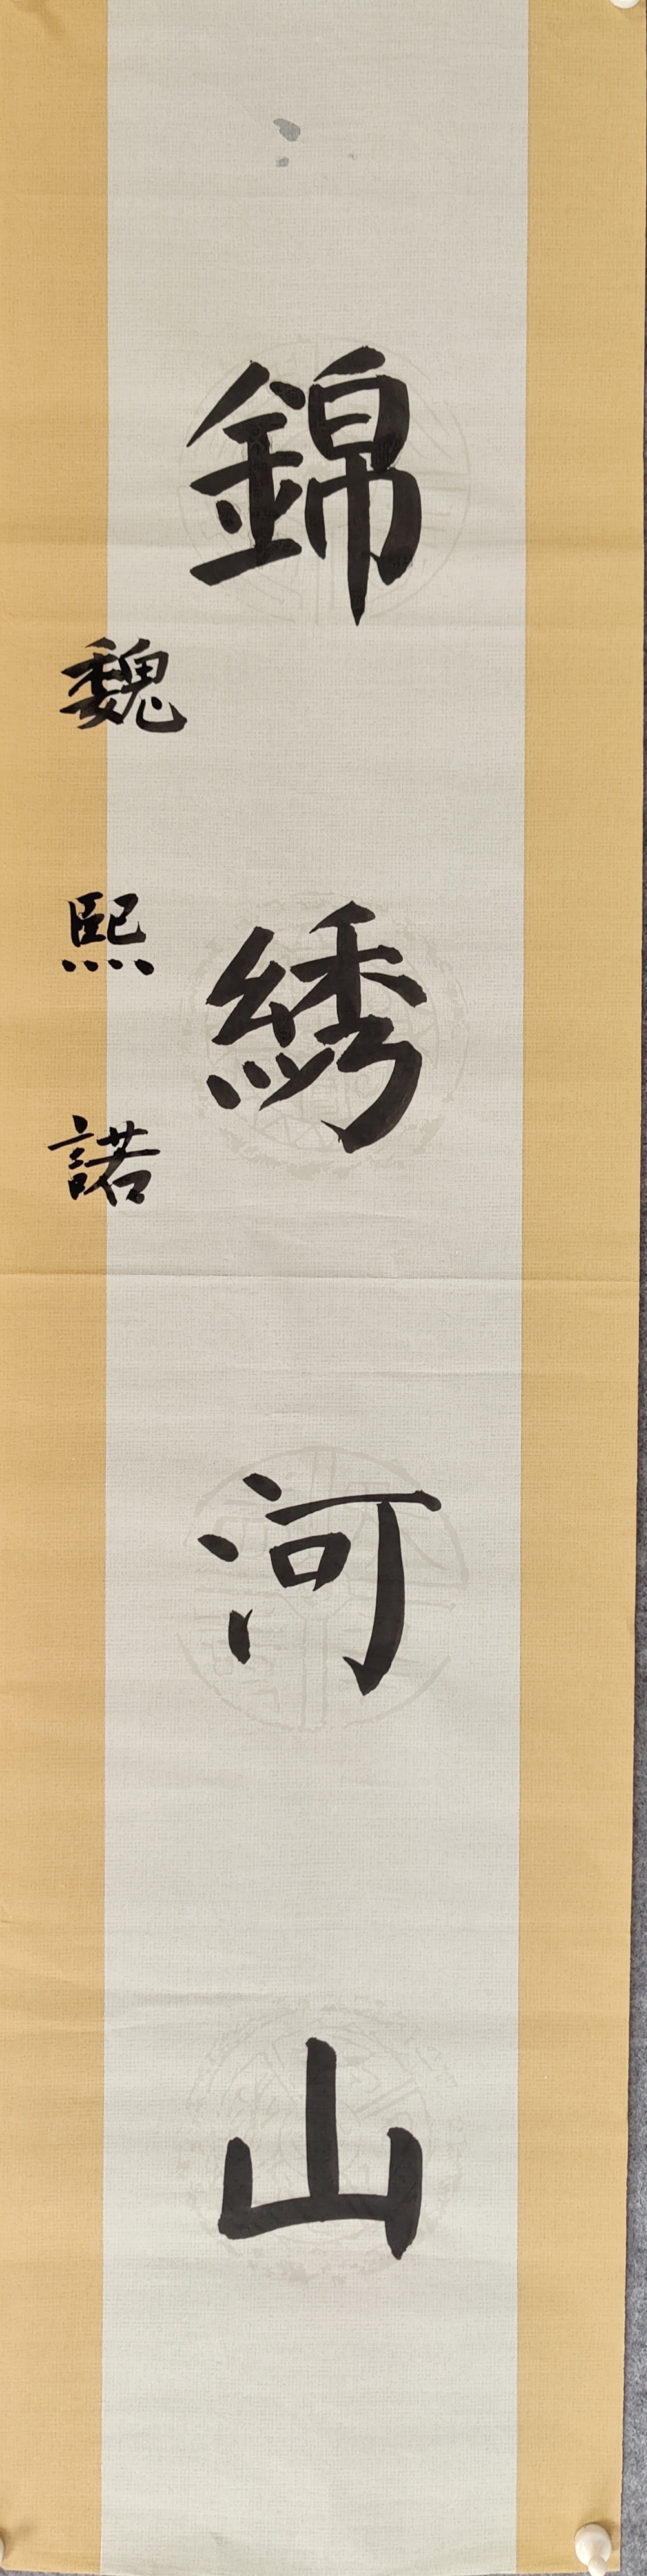 錦綉河山
魏熙諾